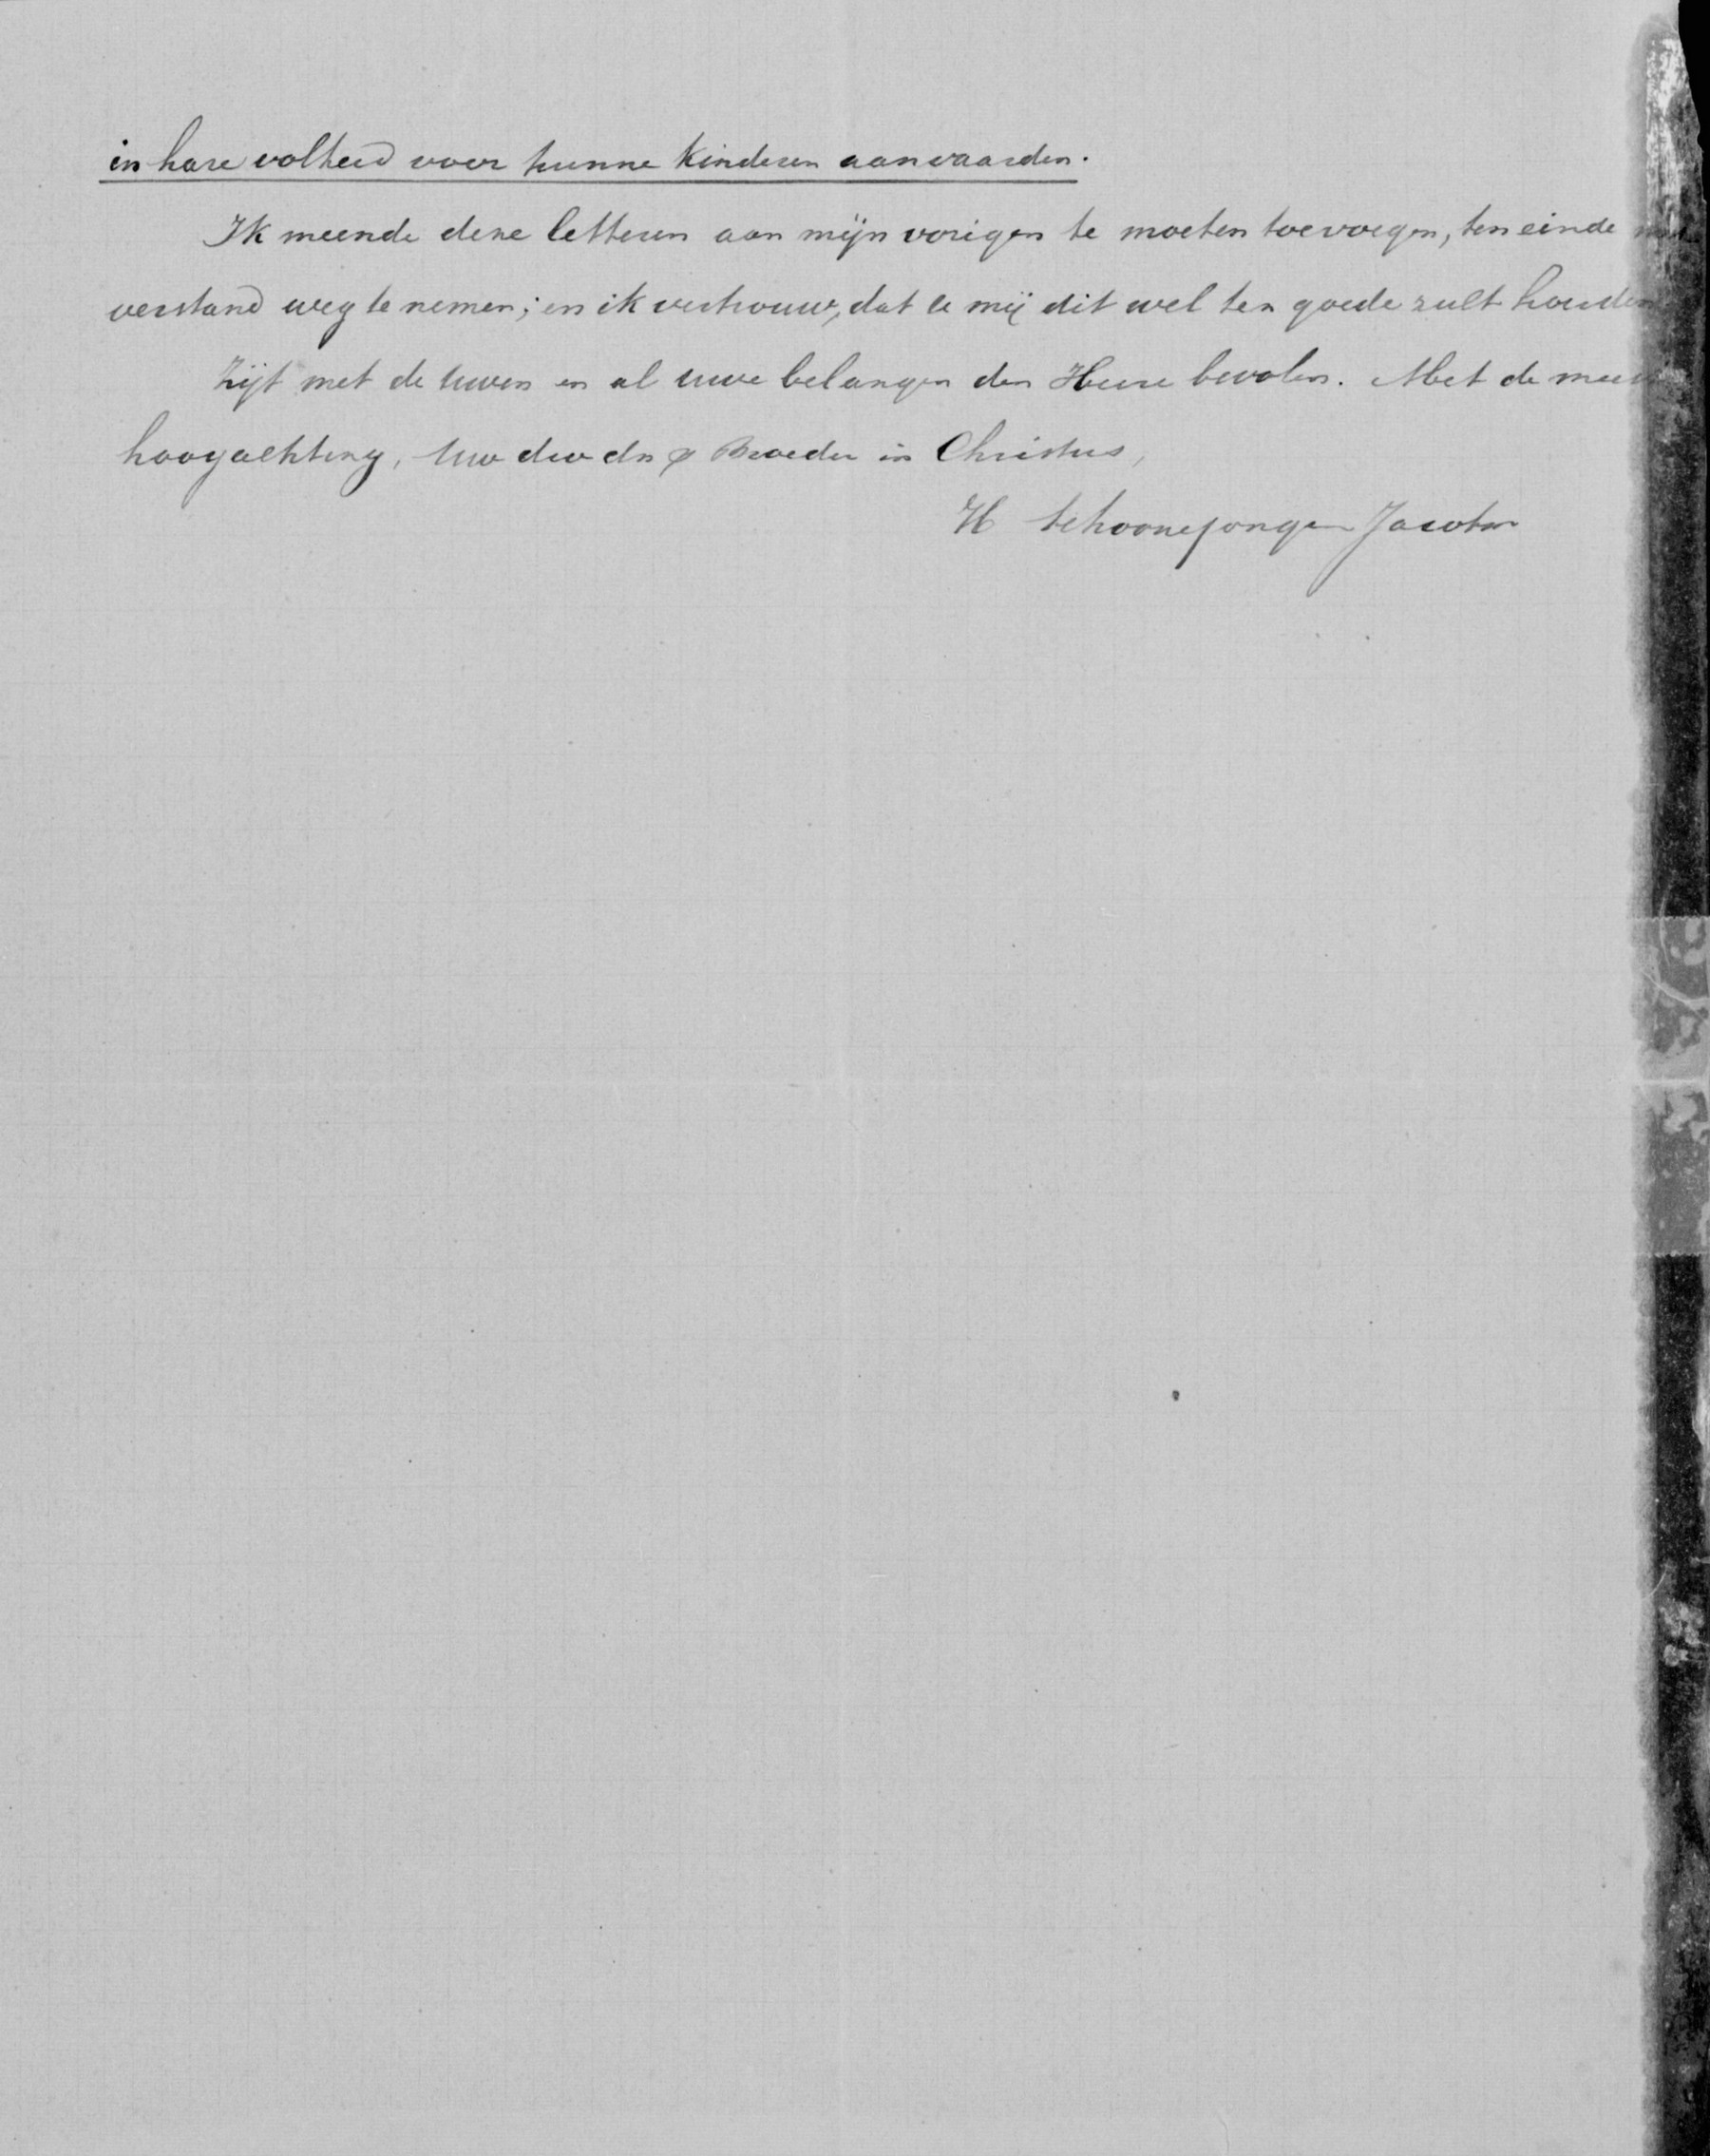 in hare volheid voor hunne kinderen aanvaarden.
Ik meende deze letteren aan mijn vorigen te moeten toevoegen, ten einde
verstand weg te nemen; en ik vertrouw, dat U mij dit wel ten goede zult houden
Zijt met de Uwen en al uwe belangen den Heere bevolen. Met de meest
hoogachting, Uw dw dn & Broeder in Christus,
H Schoonejongen Jacobzn